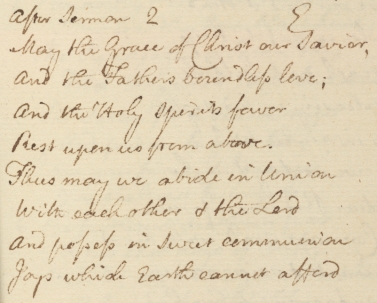 After Sermon 2 E
May the Grace of Christ our Savior,
And the Fathers boundless love;
And the Holy Spirits favor
Rest upon us from above.
Thus may we abide in Union
With each other & the Lord
And possess in sweet communion
Joys which Earth cannot afford